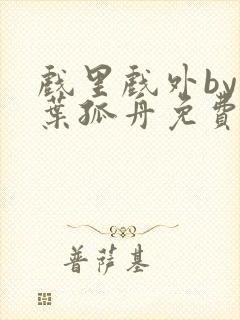 戲里戲外by
葉孤舟免費
普薩基